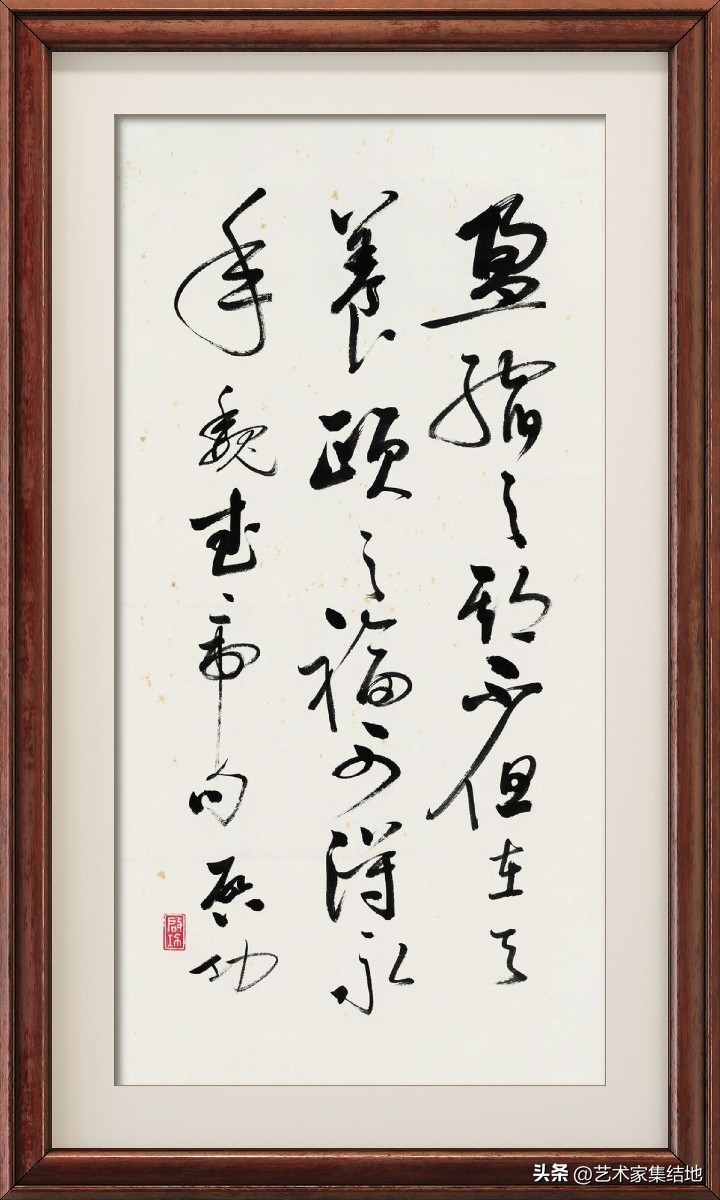 盈縮之期不但在天
養頤之福可得永
年 魏武帝句 启功
啟功
头条 @艺术家集结地